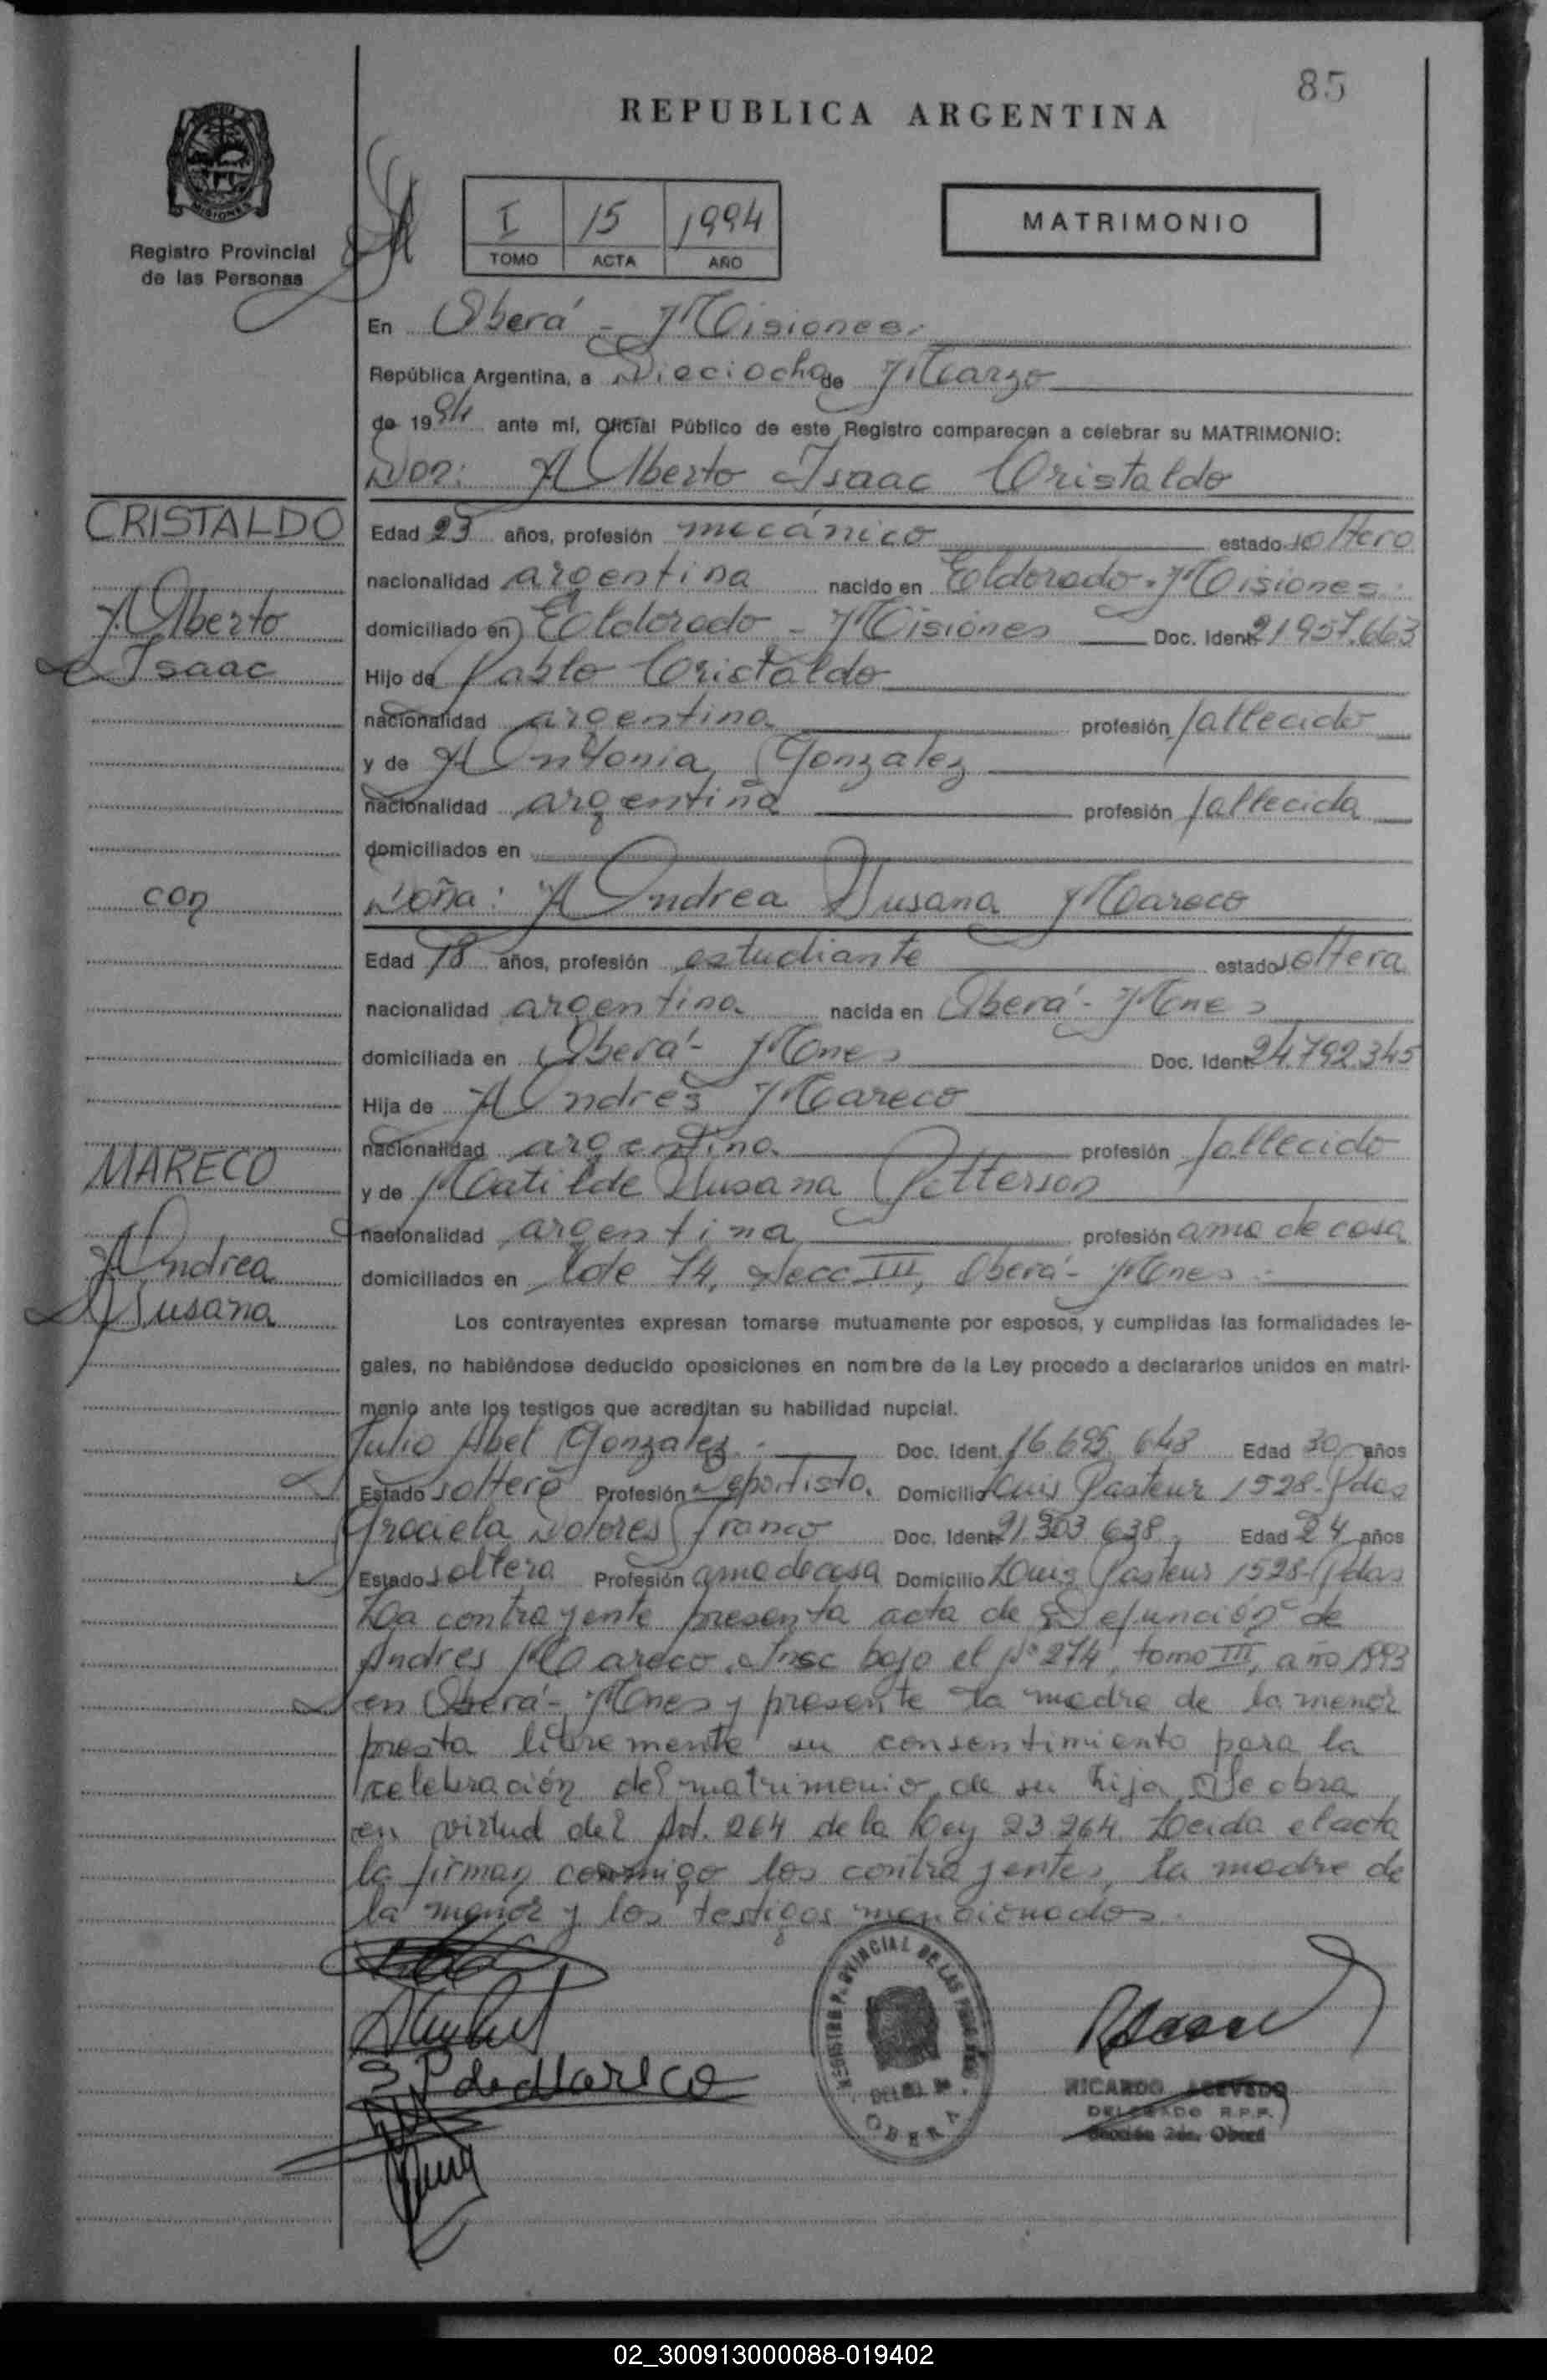 85
REPUBLICA ARGENTINA
MISIONES
Registro Provincial
de las Personas
I 15 1994
TOMO ACTA AÑO
MATRIMONIO
En Oberá - Misiones.
República Argentina, a Dieciocho de Marzo
de 1994 ante mí, Oficial Público de este Registro comparecen a celebrar su MATRIMONIO:
Don: Alberto Isaac Cristaldo
CRISTALDO
Alberto
Isaac
Edad 23 años, profesión mecánico estado soltero
nacionalidad argentina nacido en Eldorado - Misiones
domiciliado en Eldorado - Misiones Doc. Ident. 21957.663
Hijo de Pablo Cristaldo
nacionalidad argentina profesión fallecido
y de Antonia Gonzalez
nacionalidad argentina profesión fallecida
domiciliados en
con
Doña: Andrea Susana Mareco
Edad 18 años, profesión estudiante estado soltera
nacionalidad argentina nacida en Oberá - Mnes
domiciliada en Oberá - Mnes Doc. Ident. 24.792.345
Hija de Andrés Mareco
nacionalidad argentina profesión fallecido
MARECO
Andrea
Susana
y de Matilde Susana Petterson
nacionalidad argentina profesión ama de casa
domiciliados en Lote 74, Secc III, Oberá - Mnes
Los contrayentes expresan tomarse mutuamente por esposos, y cumplidas las formalidades le-
gales, no habiéndose deducido oposiciones en nombre de la Ley procedo a declararlos unidos en matri-
monio ante los testigos que acreditan su habilidad nupcial.
Julio Abel Gonzalez Doc. Ident. 16.695.648 Edad 30 años
Estado soltero Profesión Deportista Domicilio Luis Pasteur 1528 - Pdas
Graciela Dolores Franco Doc. Ident. 21.303.638 Edad 24 años
Estado soltera Profesión ama de casa Domicilio Luis Pasteur 1528 - Pdas
La contrayente presenta acta de Defunción de
Andres Mareco Insc bajo el Nº 274, tomo III, año 1993
en Oberá - Mnes y presente la madre de la menor
presta libremente su consentimiento para la
celebración del matrimonio de su hija Se obra
en virtud del Art. 264 de la Ley 23.264. Leida el acta
la firman conmigo los contrayentes, la madre de
la menor y los testigos mencionados.
P de Mareco
REGISTRO PROVINCIAL DE LAS PERSONAS
OBERA
RICARDO ACEVEDO
DELEGADO R.P.P.
Sección 2da. Oberá
02_300913000088-019402